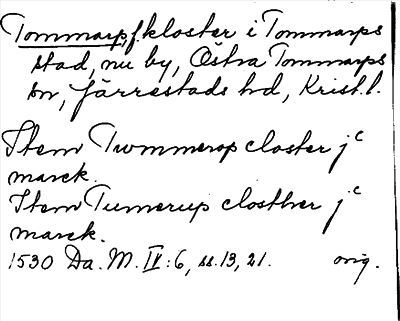 Tommarps kloster i Tommarps
stad, nu by, Östra Tommarps
sn, Järrestads hd, Krist. l.
Item Twmmerop closter jc
marck.
Item Tumerup closther jc
marck.
1530 Da. M. IV:6, ss. 13, 21. orig.